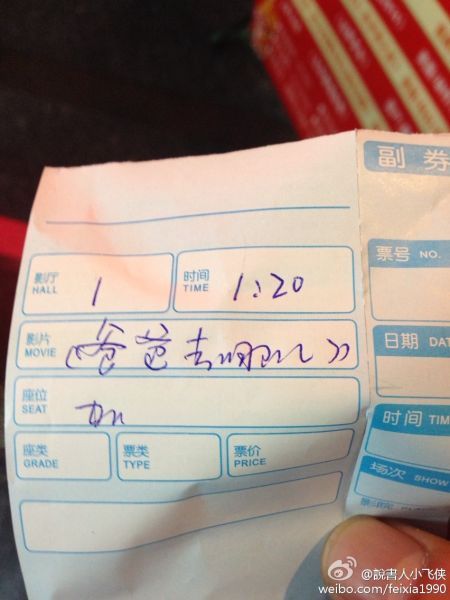 副券
影厅 HALL 1
时间 TIME 1:20
票号 NO.
影片 MOVIE 《爸爸去哪儿》
日期 DAT
座位 SEAT 加
时间 TIM
座类 GRADE
票类 TYPE
票价 PRICE
场次 SHOW
@說書人小飞侠
weibo.com/feixia1990